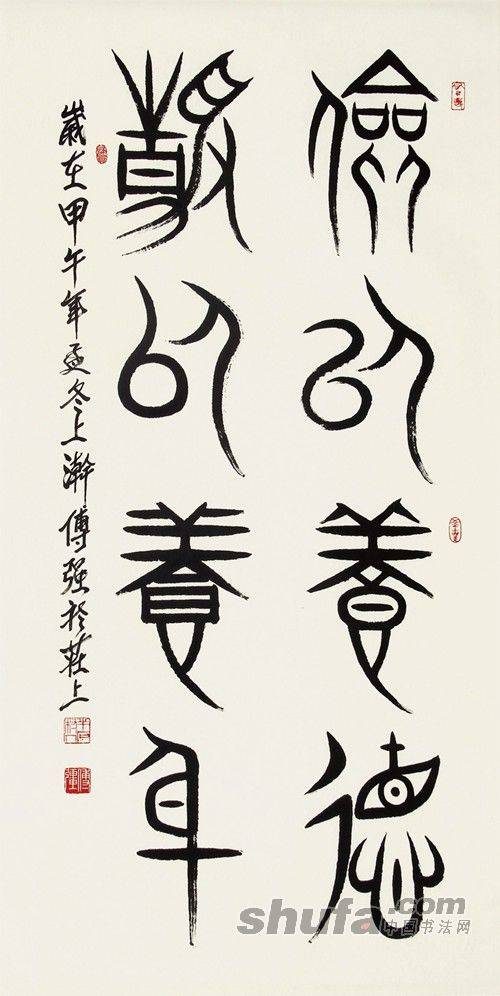 儉以養德
靜以養身
歲在甲午年孟冬上澣傅强於莊上
shufa.com
中国书法网